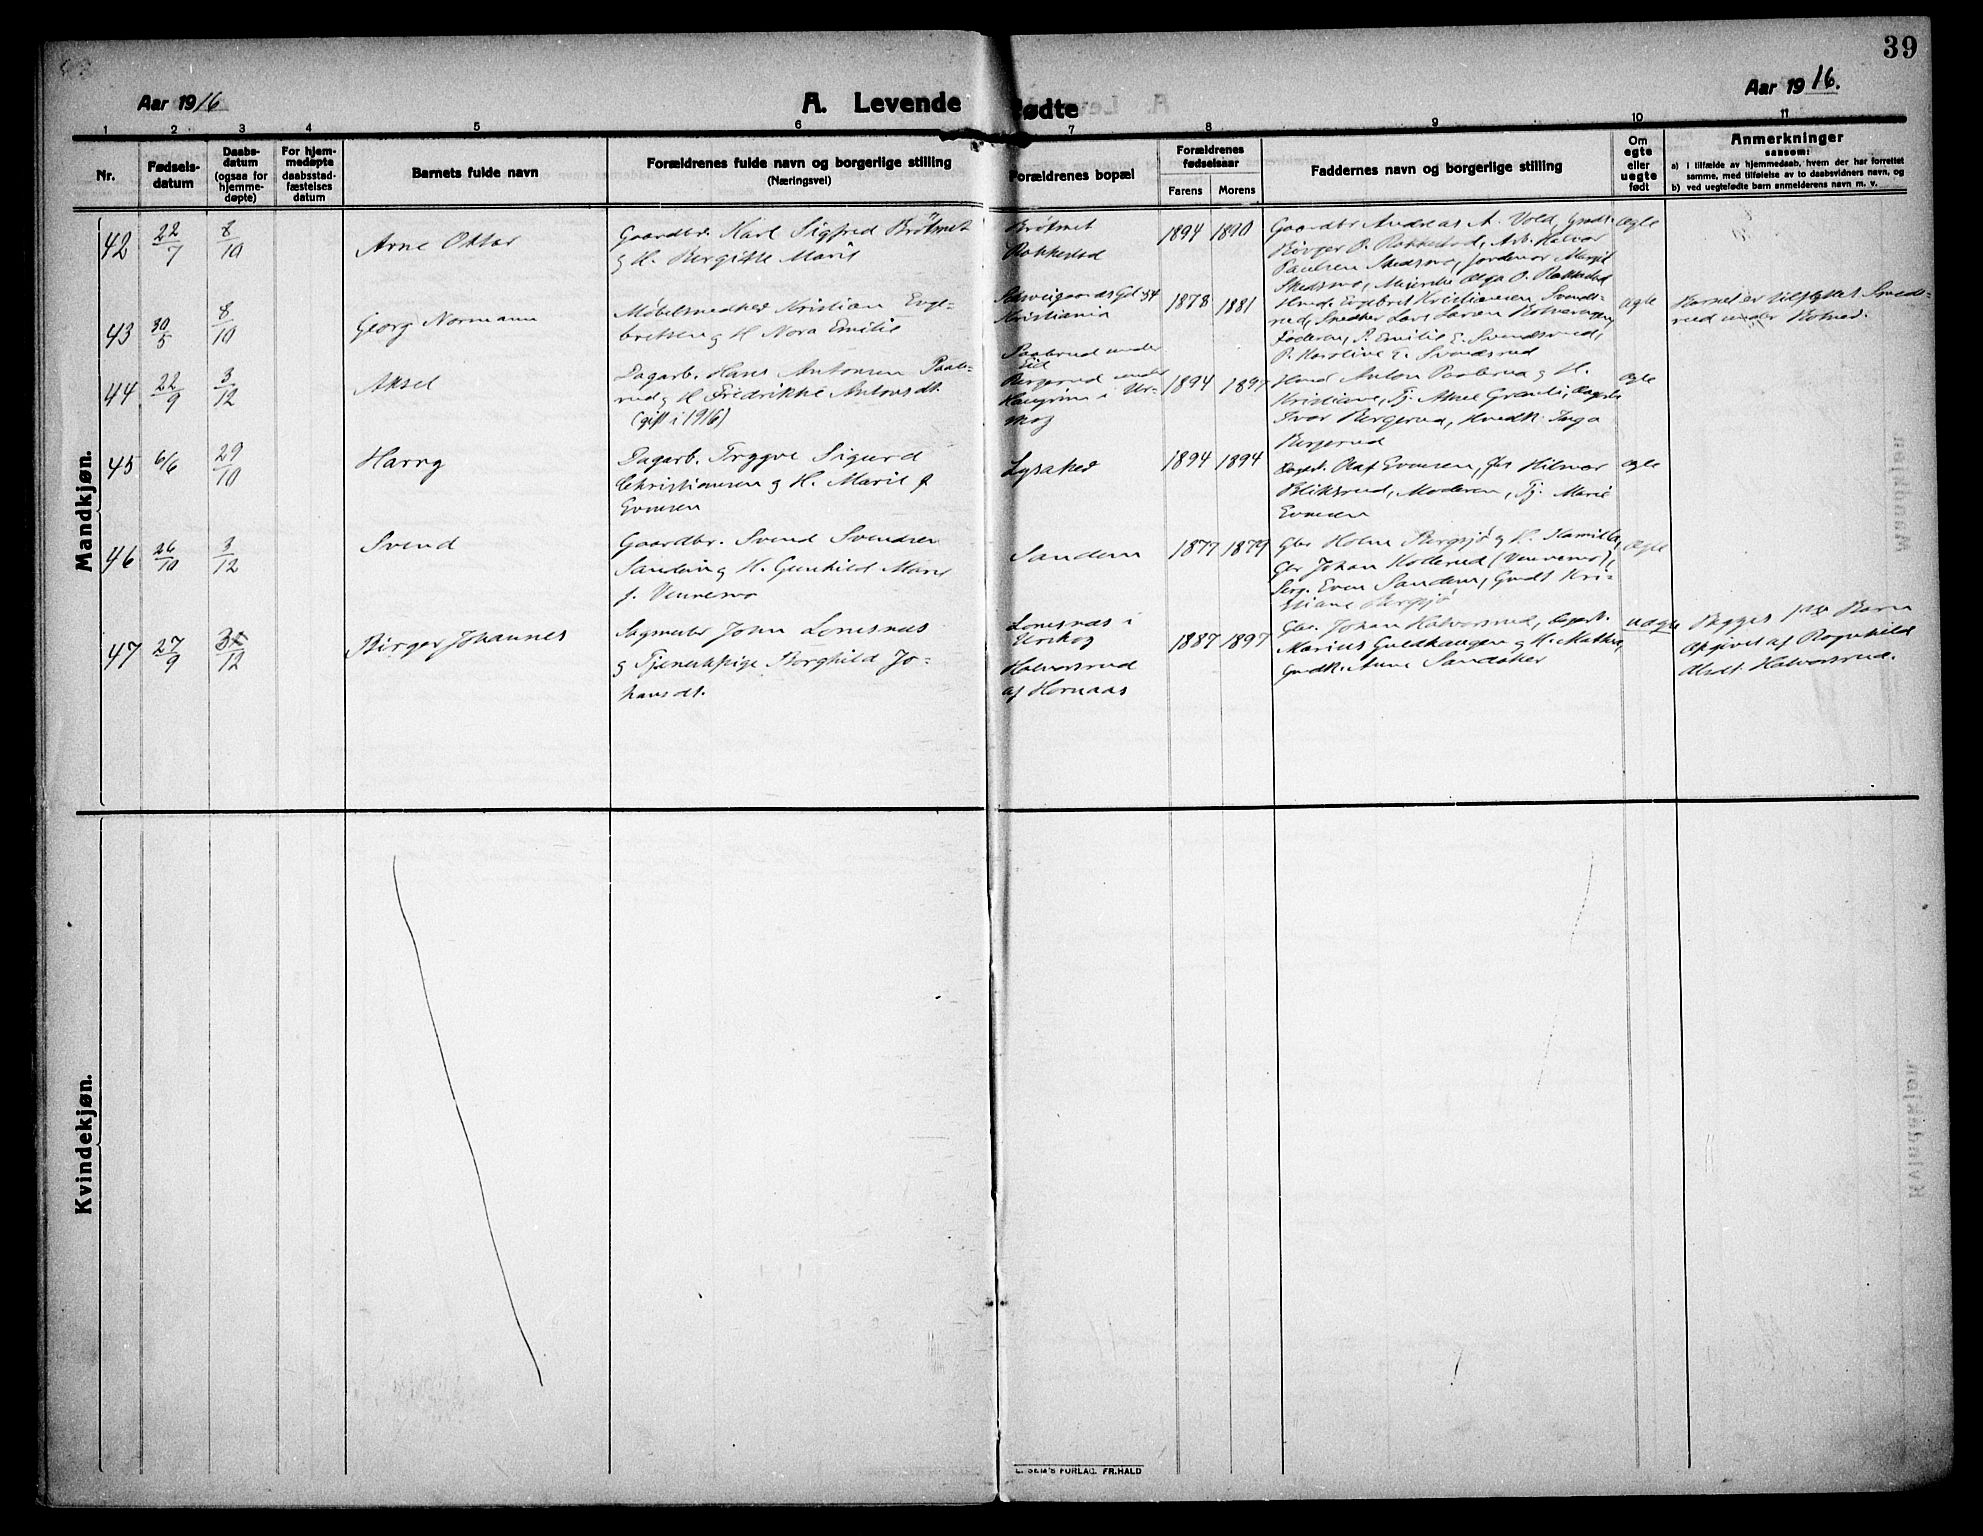 39
Aar 1916
A. Levende
ødte
Aar 1916.
1 2 3 4 5 6 7 8 9 10 11
Nr.
Fødsels-
datum
Daabs-
datum
(ogsaa for
hjemme-
døpte)
For hjem-
medøpte
daabsstad-
fæstelses
datum
Barnets fulde navn
Forældrenes fulde navn og borgerlige stilling
(Næringsvei)
Forældrenes bopæl
Forældrenes
fødselsaar
Farens Morens
Faddernes navn og borgerlige stilling
Om
egte
eller
uegte
født
Anmerkninger
saasom:
a) i tilfælde av hjemmedaab, hvem der har forrettet
samme, med tilføielse av to daabsvidners navn, og
b) ved uegtefødte barn anmelderens navn m. v.
Mandkjøn.
42 22/7 8/10 Arne Ottar
Gaardbr. Karl Sigfred Brötmet
og H. Bergitte Marie
Brötmet
Rakkestad
1894 1890
Gaardbr Andreas A. Vold, Gmdr.
Börger P. Rakkestad, Arb. Halvor
Paulsen Skedsmo, Jordmor Margit
Skedsmo, Meierske Olga O. Rakkestad
ægte
43 30/5 8/10 Georg Normann
Møbelsnedker Kristian Enge-
bretsen og H Nora Emilie
Schweigaards Gd. 54
Kristiania
1878 1881
Hmd. Engebret Kristiansen Svends-
rud, Snedker Lars Larsen
Faderen, P. Emilie E. Svendsrud,
P. Karoline E. Svendsrud
ægte
Barnet er tilflyttet
rud under
44 22/9 3/12 Aksel
Dagarb. Hans Antonsen Paale-
rud og H Fredrikke Antonsdt.
(gift i 1916)
under
Eid
Bergerud under
i Ur-
skog
1894 1897
Hmd Anton Paalerud og H.
Kristiane, Tj. Aksel
Ivar Bergerud, Hmdk. Inga
Bergerud
ægte
45 6/6 29/10 Harry
Dagarb. Trygve Sigurd
Christiansen og H. Marie f.
Evensen
Lysaker
1894 1894
Olaf Evensen, Hilmar
Bliksrud, Moderen, Tj. Marie
Evensen
ægte
46 26/10 3/12 Svend
Gaardbr. Svend Svendsen
Sandem og H. Gunhild Marie
f. Vennesmo
Sandem
1877 1879
Gbr Holm Bergsjø og H. Kamilla,
Gbr Johan Kollerud (Vennesmo),
Serg. Even Sandem, Gmdt Kri-
stiane Bergsjø
ægte
47 27/9 31/12 Birger Johannes
Sagmester John Lonesnæs
og Tjenestepige Borghild Jo-
hansdt.
Lonesnæs i
Urskog
Halvorsrud
af Hornaas
1887 1897
Gbr. Johan Halvorsrud, Dagarb.
Marius Guldhaugen og H. Mathea,
Gmdk. Anne Sandaker
uægte
Begges 1ste Barn
Opgivet af Ragnhild
Olsdt Halvorsrud.
Kvindekjøn.
E. SEM'S FORLAG. FR.HALD